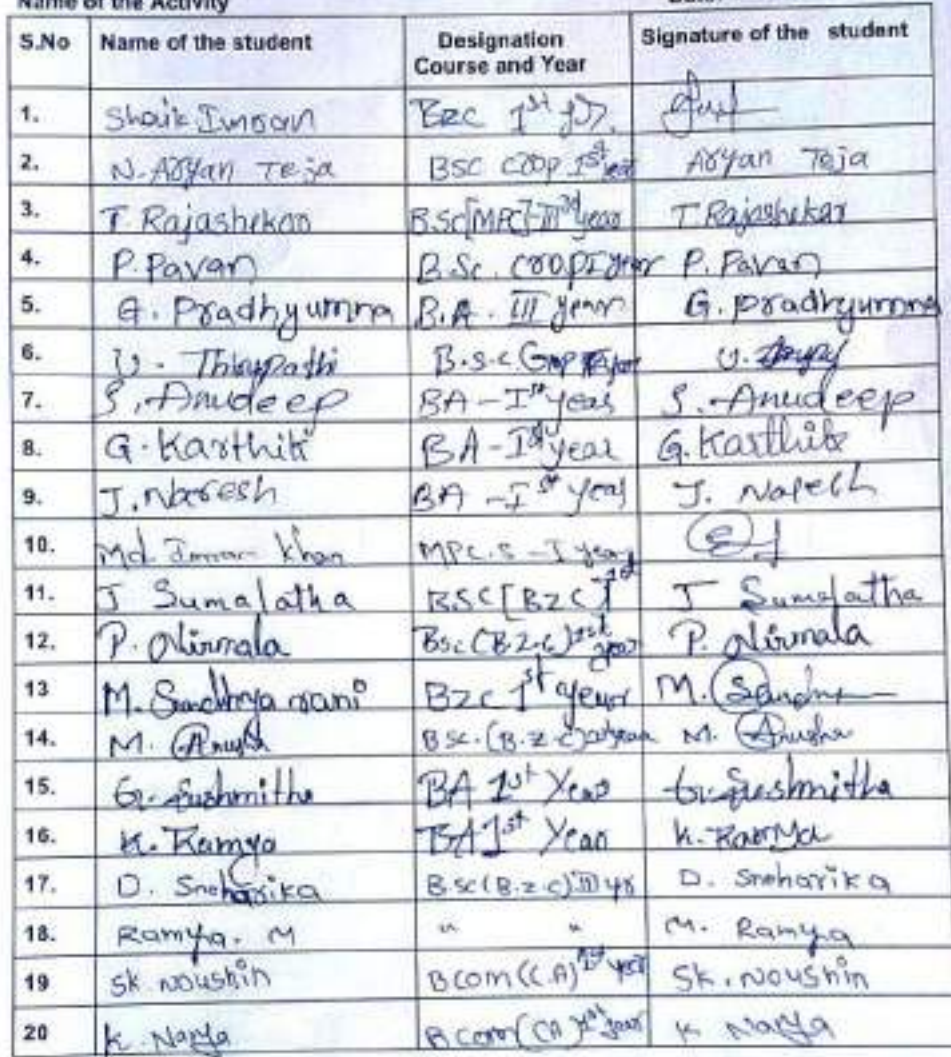 Name of the Activity
S.No Name of the student Designation Course and Year Signature of the student
1. Shaik Imran BZC 1st yr.
2. N. Aryan Teja BSC Crop Ist year Aryan Teja
3. T. Rajashekar B.Sc[MPC]-IIIrd year T. Rajashekar
4. P. Pavan B.Sc. Crop I year P. Pavan
5. G. Pradhyumna B.A. III year G. Pradhyumna
6. U. Thirupathi B.s.c Crop year U.
7. S. Anudeep BA - Ist year S. Anudeep
8. G. Karthik BA - Ist year G. Karthik
9. J. Naresh BA - Ist year J. Naresh
10. Md. Imran Khan MPC.S - I year
11. J Sumalatha BSC[BZC] Ist J Sumalatha
12. P. Nirmala Bsc(B.Z.C) 1st year P. Nirmala
13 M. Sandhya rani BZC 1st year M. Sandhya
14. M. Anusha BSc. (B.Z.C) year M. Anusha
15. G. Sushmitha BA 1st Year G. Sushmitha
16. K. Ramya BA 1st Year K. Ramya
17. D. Sneharika B.sc(B.z.c) III yr D. Sneharika
18. Ramya. M " " M. Ramya
19 SK Noushin B com(C.A) Ist year SK. Noushin
20 K. Navya B com(CA) 1st year K Navya